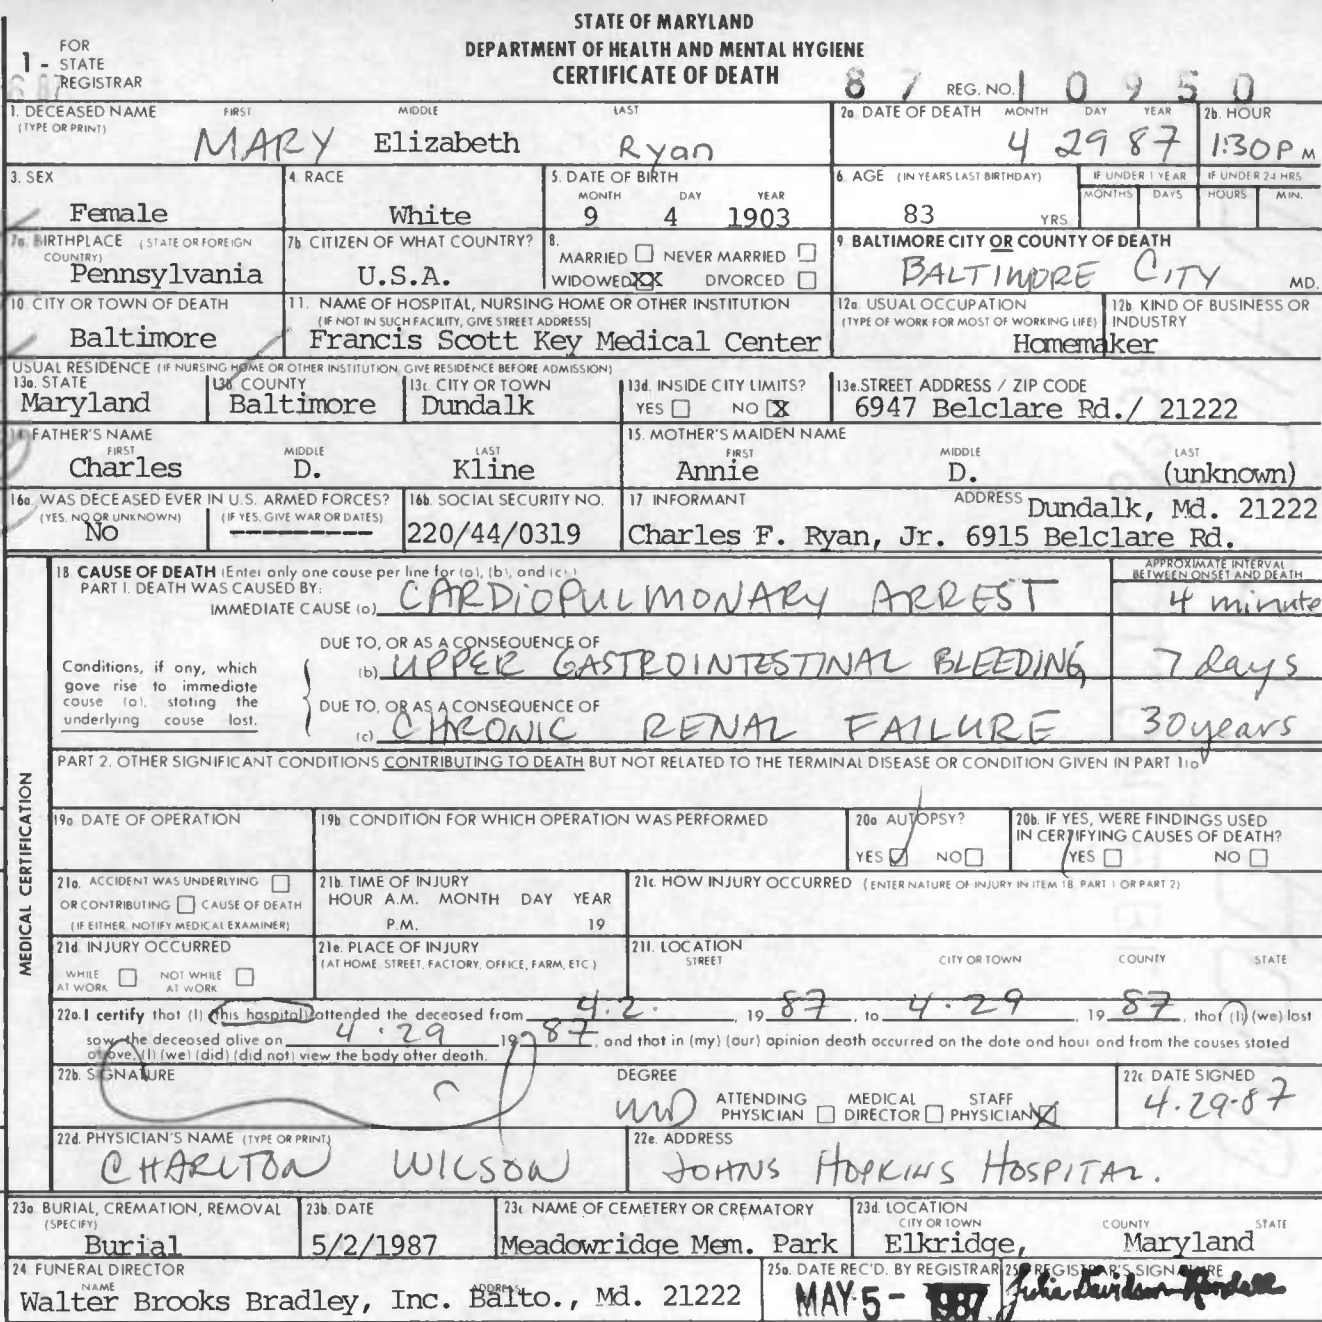 STATE OF MARYLAND
DEPARTMENT OF HEALTH AND MENTAL HYGIENE
CERTIFICATE OF DEATH
1 - FOR STATE REGISTRAR
8 7 REG. NO. 1 0 9 5 0
1. DECEASED NAME (TYPE OR PRINT) FIRST MIDDLE LAST
MARY Elizabeth Ryan
2a. DATE OF DEATH MONTH DAY YEAR
4 29 87
2b. HOUR
1:30 P M
3. SEX
Female
4. RACE
White
5. DATE OF BIRTH
MONTH DAY YEAR
9 4 1903
6. AGE (IN YEARS LAST BIRTHDAY)
83 YRS
IF UNDER 1 YEAR
MONTHS DAYS
IF UNDER 24 HRS
HOURS MIN.
7a. BIRTHPLACE (STATE OR FOREIGN COUNTRY)
Pennsylvania
7b. CITIZEN OF WHAT COUNTRY?
U.S.A.
8.
MARRIED NEVER MARRIED
WIDOWED XX DIVORCED
9. BALTIMORE CITY OR COUNTY OF DEATH
BALTIMORE CITY MD.
10. CITY OR TOWN OF DEATH
Baltimore
11. NAME OF HOSPITAL, NURSING HOME OR OTHER INSTITUTION
(IF NOT IN SUCH FACILITY, GIVE STREET ADDRESS)
Francis Scott Key Medical Center
12a. USUAL OCCUPATION
(TYPE OF WORK FOR MOST OF WORKING LIFE)
Homemaker
12b. KIND OF BUSINESS OR INDUSTRY
USUAL RESIDENCE (IF NURSING HOME OR OTHER INSTITUTION GIVE RESIDENCE BEFORE ADMISSION)
13a. STATE
Maryland
13b. COUNTY
Baltimore
13c. CITY OR TOWN
Dundalk
13d. INSIDE CITY LIMITS?
YES NO X
13e. STREET ADDRESS / ZIP CODE
6947 Belclare Rd./ 21222
14. FATHER'S NAME
FIRST MIDDLE LAST
Charles D. Kline
15. MOTHER'S MAIDEN NAME
FIRST MIDDLE LAST
Annie D. (unknown)
16a. WAS DECEASED EVER IN U.S. ARMED FORCES?
(YES, NO OR UNKNOWN) (IF YES, GIVE WAR OR DATES)
No ----------
16b. SOCIAL SECURITY NO.
220/44/0319
17. INFORMANT ADDRESS Dundalk, Md. 21222
Charles F. Ryan, Jr. 6915 Belclare Rd.
MEDICAL CERTIFICATION
18. CAUSE OF DEATH (Enter only one cause per line for (a), (b), and (c).)
PART I. DEATH WAS CAUSED BY:
APPROXIMATE INTERVAL BETWEEN ONSET AND DEATH
IMMEDIATE CAUSE (a) CARDIOPULMONARY ARREST 4 minute
DUE TO, OR AS A CONSEQUENCE OF
(b) UPPER GASTROINTESTINAL BLEEDING 7 days
Conditions, if any, which gave rise to immediate cause (a), stating the underlying cause last.
DUE TO, OR AS A CONSEQUENCE OF
(c) CHRONIC RENAL FAILURE 30 years
PART 2. OTHER SIGNIFICANT CONDITIONS CONTRIBUTING TO DEATH BUT NOT RELATED TO THE TERMINAL DISEASE OR CONDITION GIVEN IN PART 1(a)
19a. DATE OF OPERATION
19b. CONDITION FOR WHICH OPERATION WAS PERFORMED
20a. AUTOPSY?
YES NO
20b. IF YES, WERE FINDINGS USED IN CERTIFYING CAUSES OF DEATH?
YES NO
21a. ACCIDENT WAS UNDERLYING
OR CONTRIBUTING CAUSE OF DEATH
(IF EITHER, NOTIFY MEDICAL EXAMINER)
21b. TIME OF INJURY
HOUR A.M. MONTH DAY YEAR
P.M. 19
21c. HOW INJURY OCCURRED (ENTER NATURE OF INJURY IN ITEM 18, PART 1 OR PART 2)
21d. INJURY OCCURRED
WHILE AT WORK NOT WHILE AT WORK
21e. PLACE OF INJURY
(AT HOME, STREET, FACTORY, OFFICE, FARM, ETC.)
21f. LOCATION
STREET CITY OR TOWN COUNTY STATE
22a. I certify that (I) (this hospital) attended the deceased from 4.2. , 19 87 , to 4.29 , 19 87 , that (I) (we) last
saw the deceased alive on 4.29 19 87 , and that in (my) (our) opinion death occurred on the date and hour and from the causes stated
above, (I) (we) (did) (did not) view the body after death.
22b. SIGNATURE
DEGREE
MD ATTENDING PHYSICIAN MEDICAL DIRECTOR STAFF PHYSICIAN X
22c. DATE SIGNED
4.29.87
22d. PHYSICIAN'S NAME (TYPE OR PRINT)
CHARLTON WILSON
22e. ADDRESS
JOHNS HOPKINS HOSPITAL.
23a. BURIAL, CREMATION, REMOVAL (SPECIFY)
Burial
23b. DATE
5/2/1987
23c. NAME OF CEMETERY OR CREMATORY
Meadowridge Mem. Park
23d. LOCATION
CITY OR TOWN COUNTY STATE
Elkridge, Maryland
24. FUNERAL DIRECTOR
NAME ADDRESS
Walter Brooks Bradley, Inc. Balto., Md. 21222
25a. DATE REC'D. BY REGISTRAR
MAY 5 - 1987
25b. REGISTRAR'S SIGNATURE
Julia Davidson-Randall